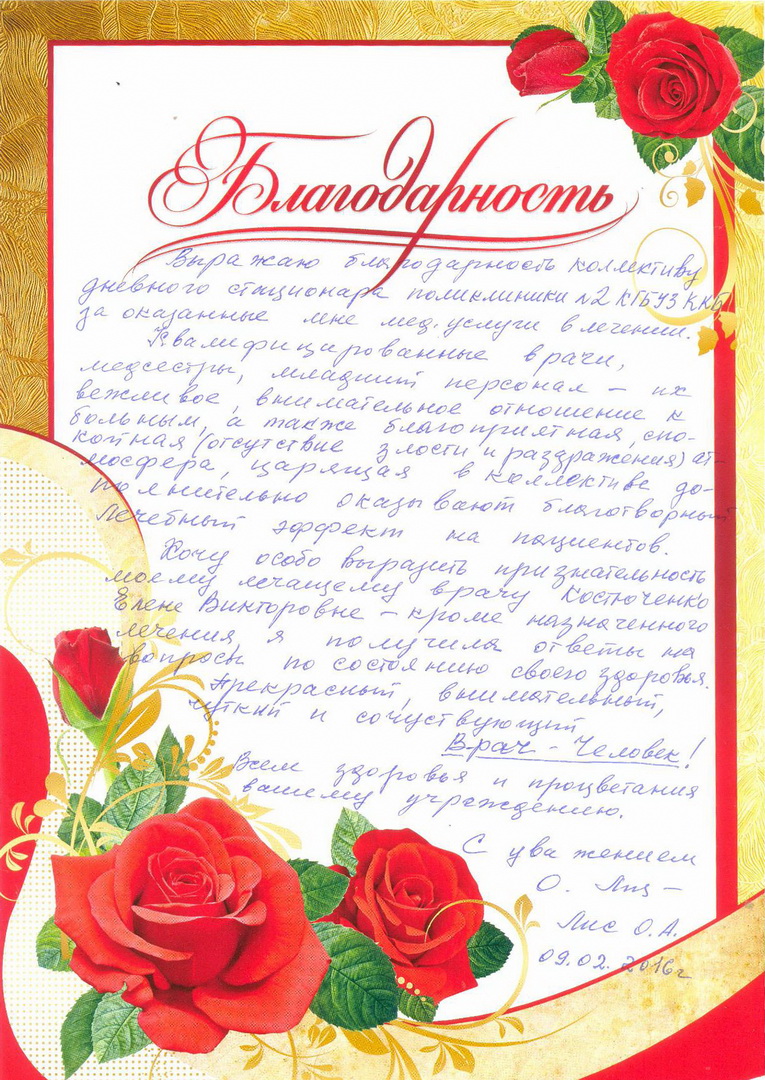 Благодарность
Выражаю благодарность коллективу
дневного стационара поликлиники №2 КГБУЗ ККБ
за оказанные мне мед. услуги в лечении.
Квалифицированные врачи,
медсестры, младший персонал – их
вежливое, внимательное отношение к
больным, а также благоприятная, спо-
койная (отсутствие злости и раздражения) ат-
мосфера, царящая в коллективе до-
полнительно оказывают благотворный
лечебный эффект на пациентов.
Хочу особо выразить признательность
моему лечащему врачу Костюченко
Елене Викторовне – кроме назначенного
лечения я получила ответы на
вопросы по состоянию своего здоровья.
Прекрасный, внимательный,
чуткий и сочуствующий
Врач - Человек!
Всем здоровья и процветания
вашему учреждению.
С уважением
О. Лис –
Лис О.А.
09.02. 2016г